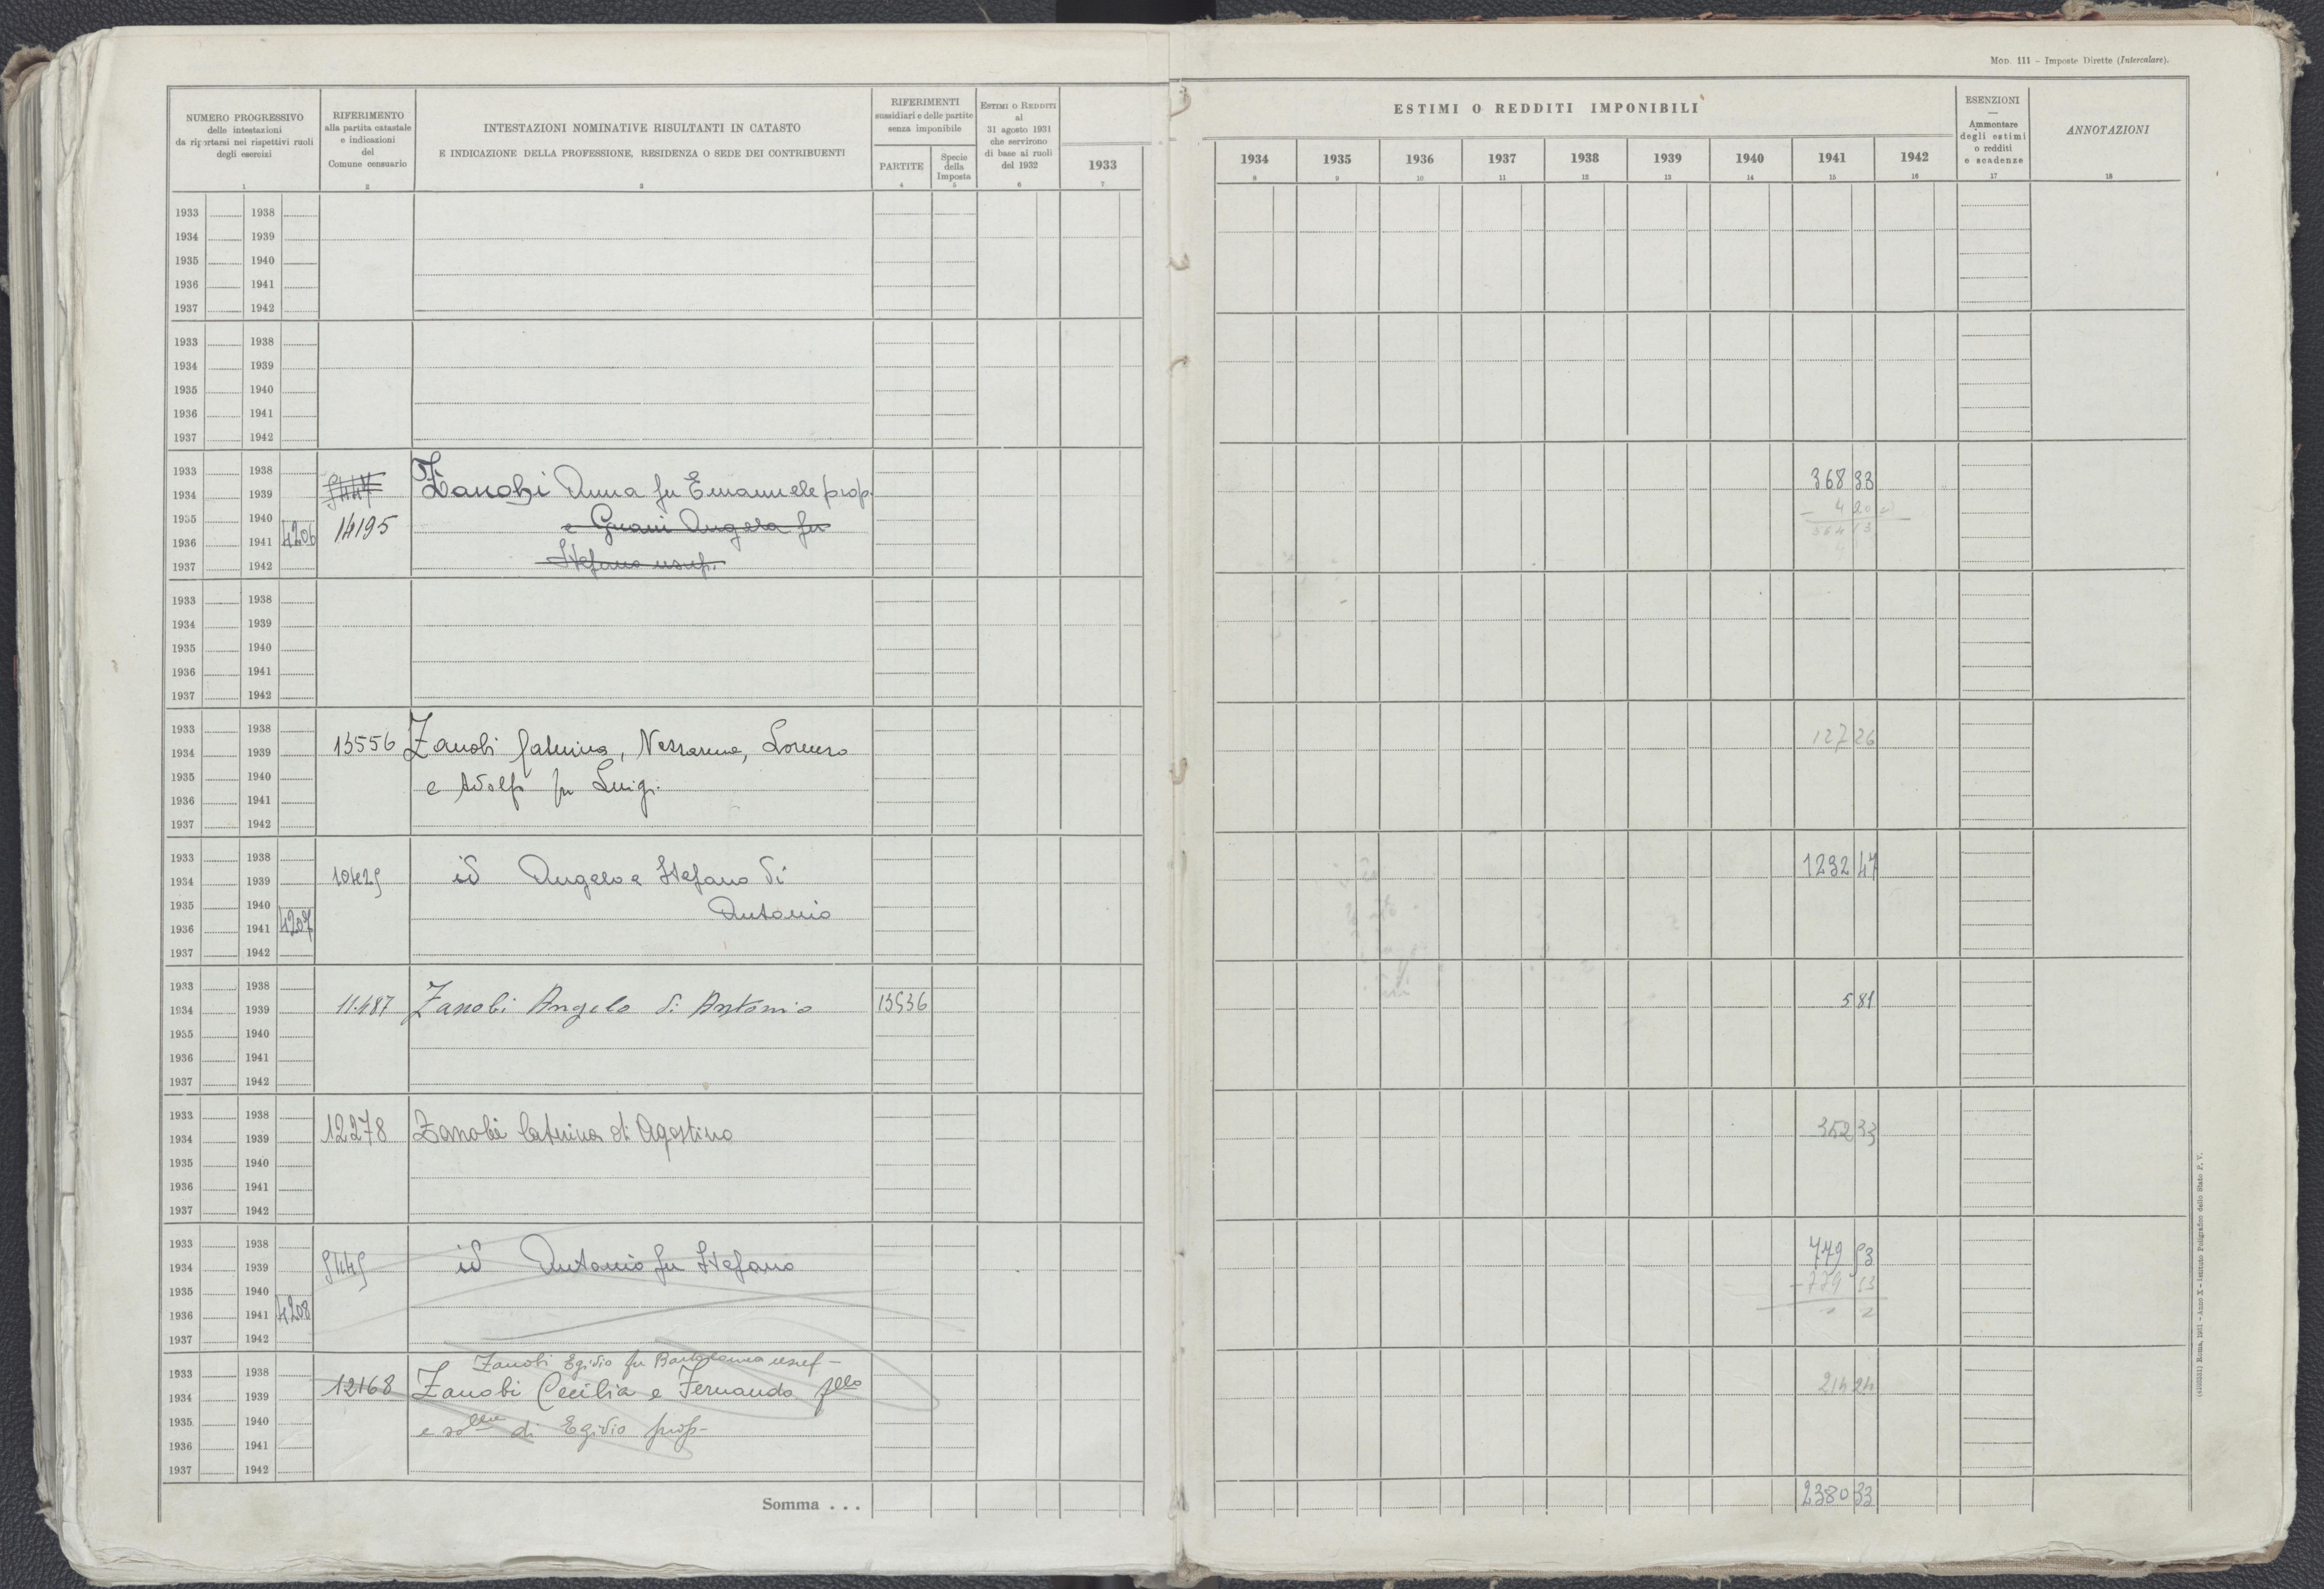 Mod. 111 – Imposte Dirette (Intercalare).
NUMERO PROGRESSIVO
delle intestazioni
da riportarsi nei rispettivi ruoli
degli esercizi
1
RIFERIMENTO
alla partita catastale
e indicazioni
del
Comune censuario
2
INTESTAZIONI NOMINATIVE RISULTANTI IN CATASTO
E INDICAZIONE DELLA PROFESSIONE, RESIDENZA O SEDE DEI CONTRIBUENTI
3
RIFERIMENTI
sussidiari e delle partite
senza imponibile
PARTITE
4
Specie
della
Imposta
5
Estimi o Redditi
al
31 agosto 1931
che servirono
di base ai ruoli
del 1932
6
1933
7
ESTIMI O REDDITI IMPONIBILI
1934 1935 1936 1937 1938 1939 1940 1941 1942
8 9 10 11 12 13 14 15 16
ESENZIONI
—
Ammontare
degli estimi
o redditi
e scadenze
17
ANNOTAZIONI
18
1933 1938
1934 1939
1935 1940
1936 1941
1937 1942
1933 1938
1934 1939
1935 1940
1936 1941
1937 1942
1933 1938 368 33
1934 1939 Zanobi Anna fu Emanuele prop.
1935 1940 14195 e Guani Angela fu
1936 1941 4206
1937 1942 Stefano usuf.
1933 1938
1934 1939
1935 1940
1936 1941
1937 1942
1933 1938
1934 1939 13556 Zanobi Caterina, Nazzarena, Lorenzo 127 26
1935 1940 e Adolfo fu Luigi
1936 1941
1937 1942
1933 1938
1934 1939 10429 id Angelo e Stefano di 1232 47
1935 1940 Antonio
1936 1941 4207
1937 1942
1933 1938
1934 1939 11487 Zanobi Angelo di Antonio 13536 5 81
1935 1940
1936 1941
1937 1942
1933 1938
1934 1939 12278 Zanobi Caterina di Agostino 352 33
1935 1940
1936 1941
1937 1942
1933 1938
1934 1939 id Antonio fu Stefano 779 53
1935 1940
1936 1941 4208
1937 1942
Zanobi Egidio fu Bartolomeo usuf-
1933 1938
1934 1939 12168 Zanobi Cecilia e Fernando fllo 214 24
1935 1940 e sollo di Egidio prop-
1936 1941
1937 1942
Somma . . . 2380 33
(4103331) Roma, 1931 – Anno X – Istituto Poligrafico dello Stato P. V.